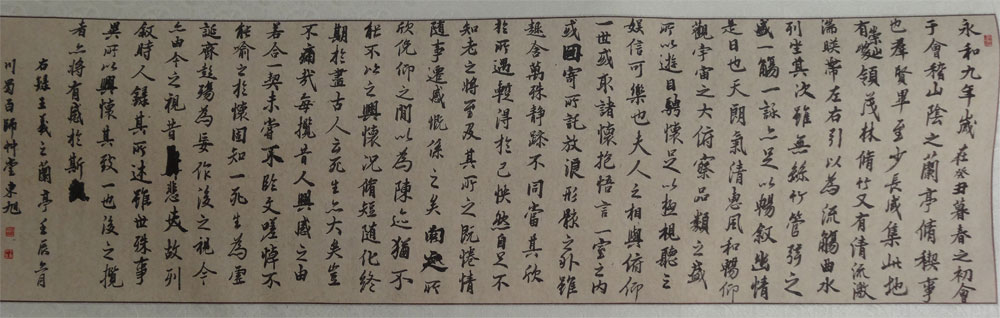 永和九年歲在癸丑暮春之初會
于會稽山陰之蘭亭脩稧事
也羣賢畢至少長咸集此地
有崇山峻領茂林脩竹又有清流激
湍暎帶左右引以為流觴曲水
列坐其次雖無絲竹管弦之
盛一觴一詠亦足以暢敘幽情
是日也天朗氣清惠風和暢仰
觀宇宙之大俯察品類之盛
所以遊目騁懷足以極視聽之
娛信可樂也夫人之相與俯仰
一世或取諸懷抱悟言一室之內
或因寄所託放浪形骸之外雖
趣舍萬殊靜躁不同當其欣
於所遇暫得於己怏然自足不
知老之將至及其所之既惓情
隨事遷感慨係之矣向之所
欣俛仰之間以為陳迹猶不
能不以之興懷況脩短隨化終
期於盡古人云死生亦大矣豈
不痛哉每攬昔人興感之由
若合一契未嘗不臨文嗟悼不
能喻之於懷固知一死生為虛
誕齊彭殤為妄作後之視今
亦由今之視昔悲夫故列
敘時人錄其所述雖世殊事
異所以興懷其致一也後之攬
者亦將有感於斯文
右錄王羲之蘭亭壬辰六月
川蜀百師艸堂東旭